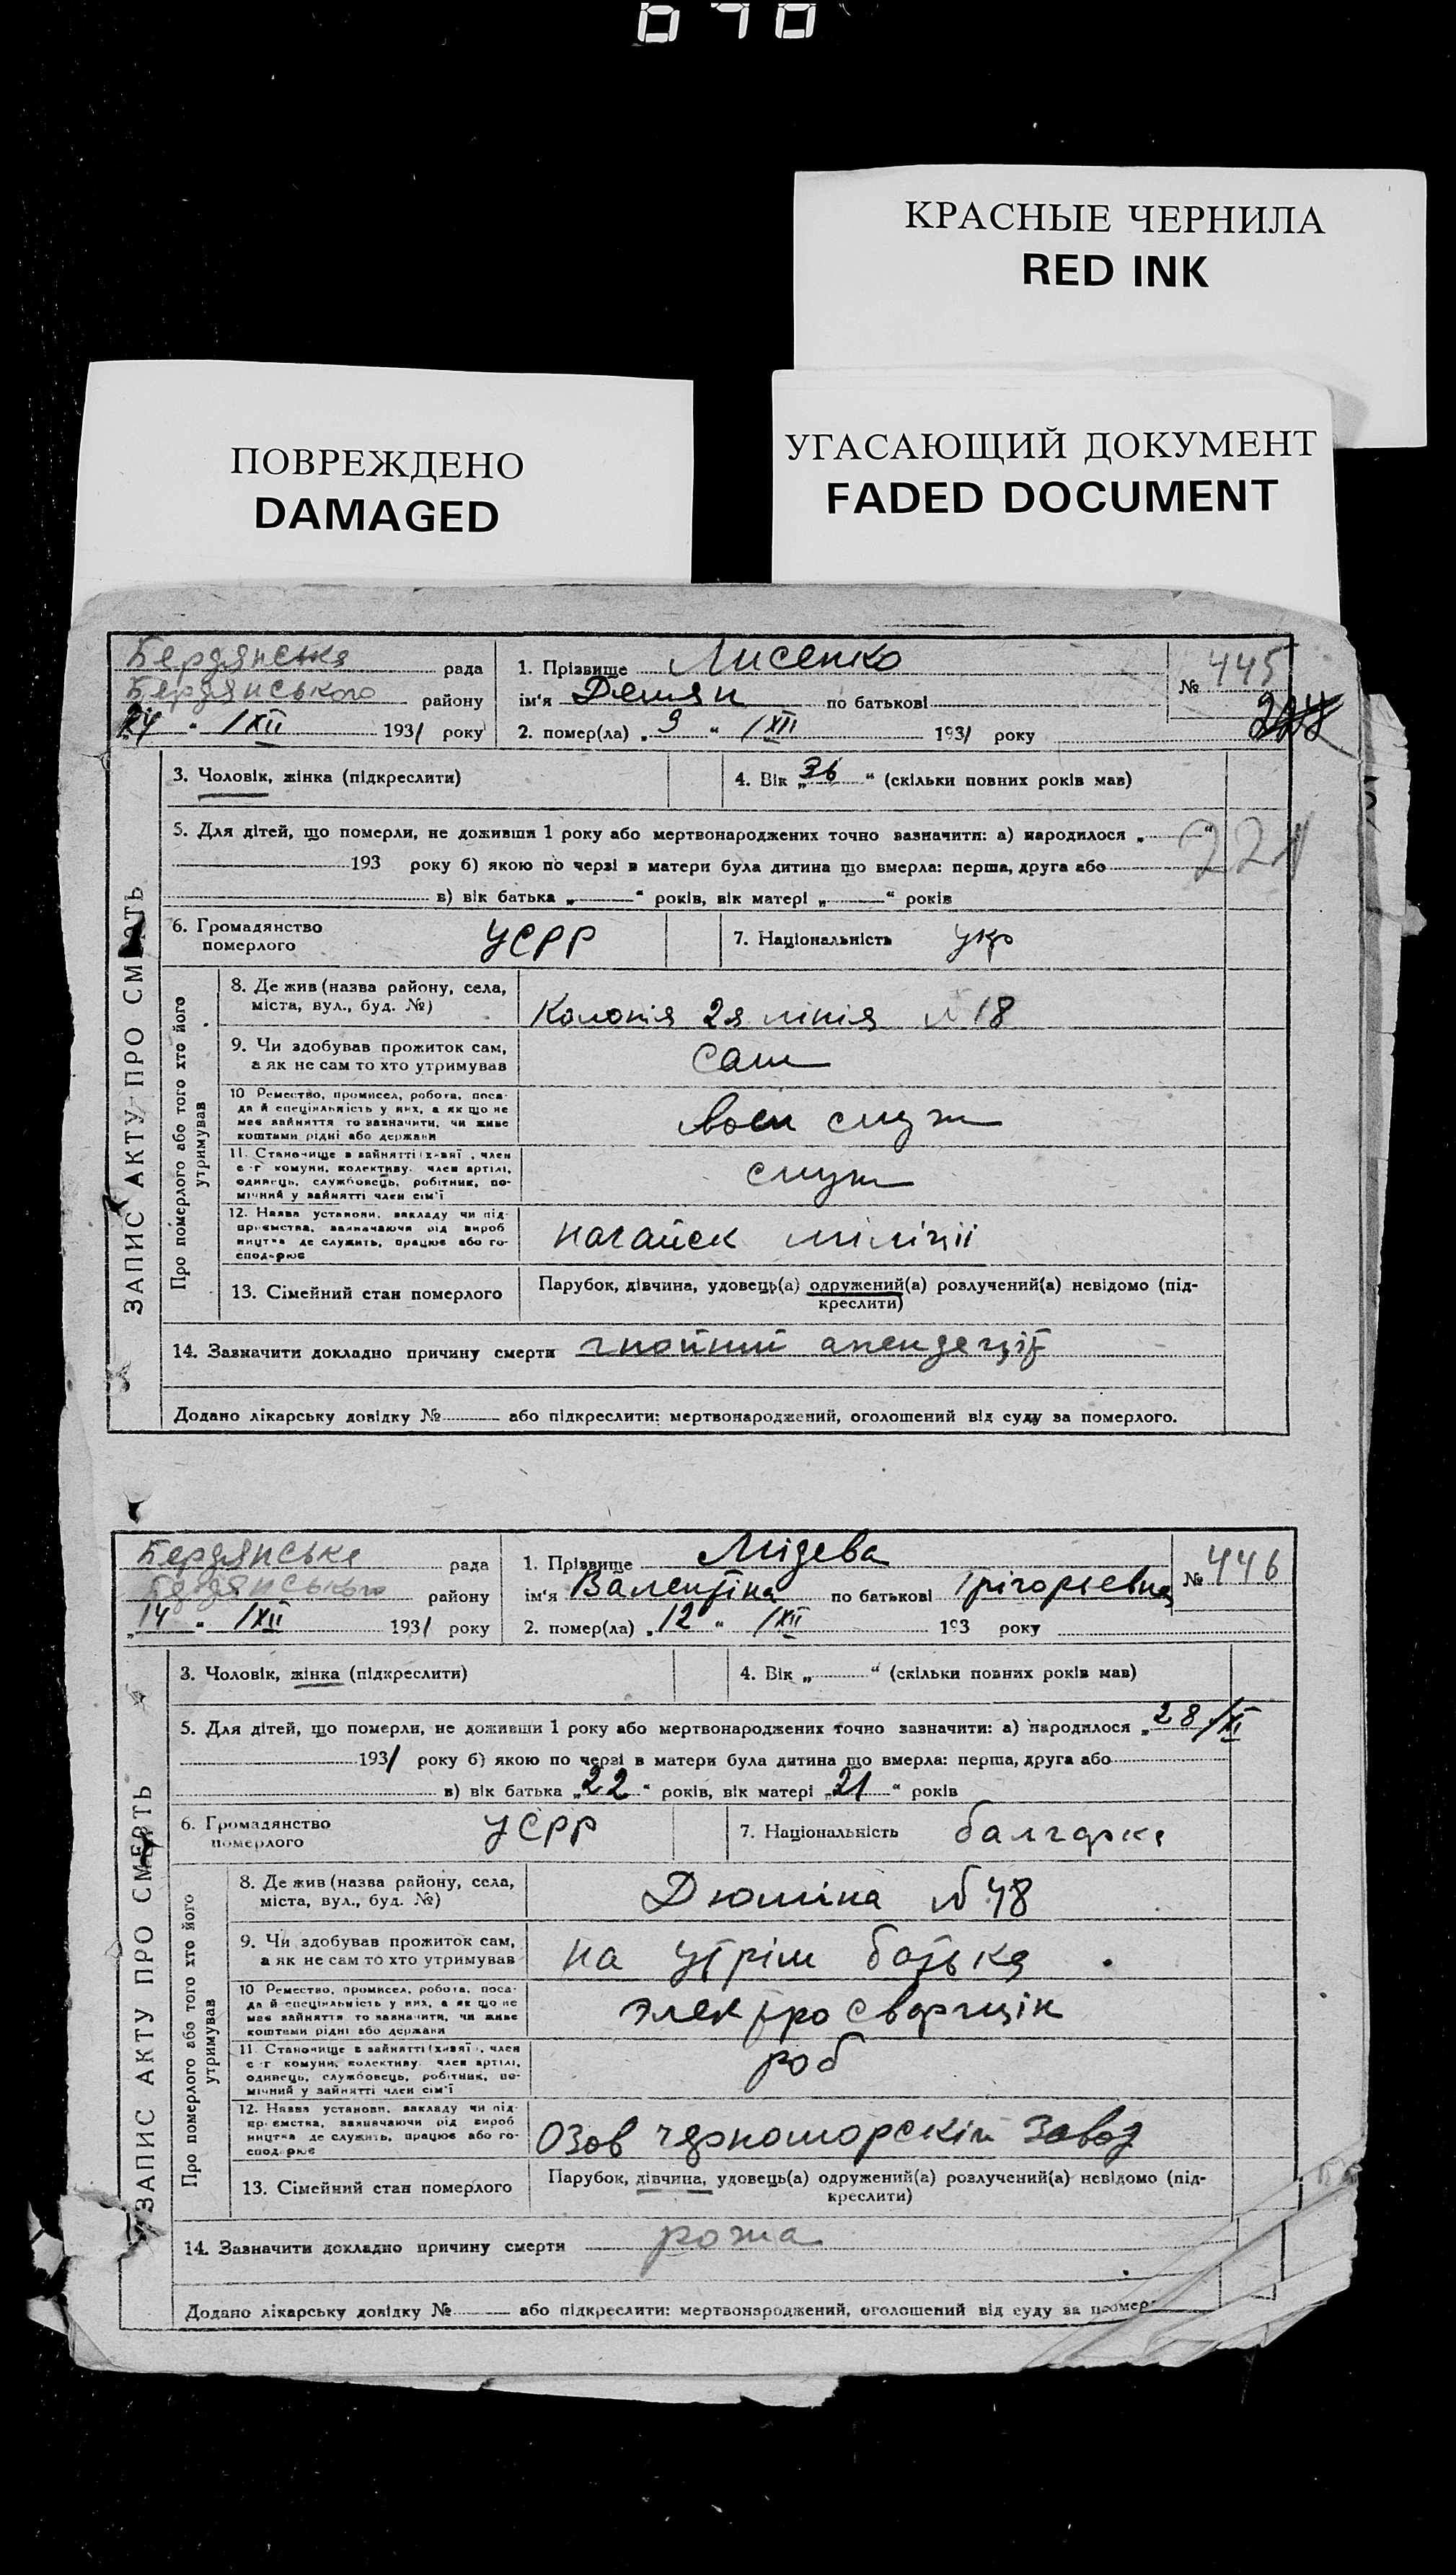 КРАСНЫЕ ЧЕРНИЛА
RED INK
ПОВРЕЖДЕНО
DAMAGED
УГАСАЮЩИЙ ДОКУМЕНТ
FADED DOCUMENT
Бердянська рада
Бердянського району
„14 “ /XII 1931 року
1. Прізвище Лисенко
ім'я Демян по батькові
2. помер(ла) „ 9 “ /XII 1931 року
№ 445
224
3. Чоловік, жінка (підкреслити)
4. Вік „36 “ (скільки повних років мав)
5. Для дітей, що померли, не доживши 1 року або мертвонароджених точно зазначити: а) народилося „ “
193 року б) якою по черзі в матери була дитина що вмерла: перша, друга або
в) вік батька „ “ років, вік матері „ “ років
221
ЗАПИС АКТУ ПРО СМЕРТЬ
6. Громадянство померлого УСРР
7. Національність укр
Про померлого або того хто його утримував
8. Де жив (назва району, села,
міста, вул., буд. №) Колонія 2я лінія №18
9. Чи здобував прожиток сам,
а як не сам то хто утримував сам
10 Ремество, промисел, робота, поса-
да й спеціяльність у них, а як що не
має зайняття то зазначити, чи живе
коштами рідні або держави
воен служ
11. Становище в зайнятті (хазяї, член
с-г комуни, колективу, член артілі,
одинець, службовець, робітник, по-
мічний у зайнятті член сім'ї
служ
12. Назва установи, закладу чи під-
приємства, зазначаючи рід вироб
ництва де служить, працює або го-
сподарює
ногайск міліціі
13. Сімейний стан померлого
Парубок, дівчина, удовець(а) одружений(а) розлучений(а) невідомо (під-
креслити)
14. Зазначити докладно причину смерти гнойний апендецiт
Додано лікарську довідку № або підкреслити: мертвонароджений, оголошений від суду за померлого.
Бердянська рада
Бердянського району
„14 “ /XII 1931 року
1. Прізвище Мідева
ім'я Валентіна по батькові Грігорьевна
2. помер(ла) „12 “ /XII 193 року
№ 446
3. Чоловік, жінка (підкреслити)
4. Вік „ “ (скільки повних років мав)
5. Для дітей, що померли, не доживши 1 року або мертвонароджених точно зазначити: а) народилося „28/XI
1931 року б) якою по черзі в матери була дитина що вмерла: перша, друга або
в) вік батька „22 “ років, вік матері „21 “ років
ЗАПИС АКТУ ПРО СМЕРТЬ
6. Громадянство померлого УСРР
7. Національність балгарка
Про померлого або того хто його утримував
8. Де жив (назва району, села,
міста, вул., буд. №) Дюміна №48
9. Чи здобував прожиток сам,
а як не сам то хто утримував на утрім батька
10 Ремество, промисел, робота, поса-
да й спеціяльність у них, а як що не
має зайняття то зазначити, чи живе
коштами рідні або держави
электросварщік
11. Становище в зайнятті (хазяї, член
с-г комуни, колективу, член артілі,
одинець, службовець, робітник, по-
мічний у зайнятті член сім'ї
роб
12. Назва установи, закладу чи під-
приємства, зазначаючи рід вироб
ництва де служить, працює або го-
сподарює
Озов чорноморскій завод
13. Сімейний стан померлого
Парубок, дівчина, удовець(а) одружений(а) розлучений(а) невідомо (під-
креслити)
14. Зазначити докладно причину смерти рожа
Додано лікарську довідку № або підкреслити: мертвонароджений, оголошений від суду за помер